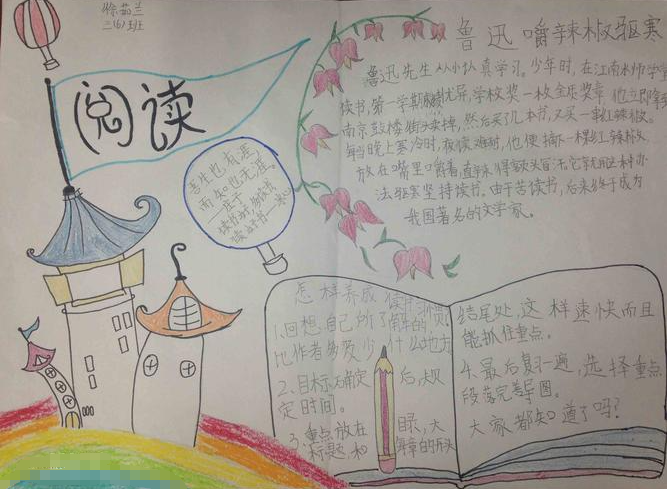 徐茹兰
三(6)班
阅读
吾生也有涯，
而知也无涯。
——庄子
读书好，多读书，
读好书——冰心
鲁迅嚼辣椒驱寒
鲁迅先生从小认真学习。少年时，在江南水师学堂
读书，第一学期成绩优异，学校奖一枚金质奖章，他立即拿到
南京鼓楼街头卖掉，然后买了几本书，又买一串红辣椒。
每当晚上寒冷时，夜读难耐，他便摘一棵红辣椒，
放在嘴里嚼着，直辣得额头冒汗。它就用这种办
法驱寒坚持读书。由于苦读书，后来终于成为
我国著名的文学家。
怎样养成读书习惯
1.回想自己所了解的，
比作者多多少什么地方
2.目标确定后，
定时间。
3.重点放在目录，大
标题，和章的开头
结尾处，这样速快而且
能抓住重点。
4.最后复习一遍，选择重点
段落完善导图。
大家都知道了吗？